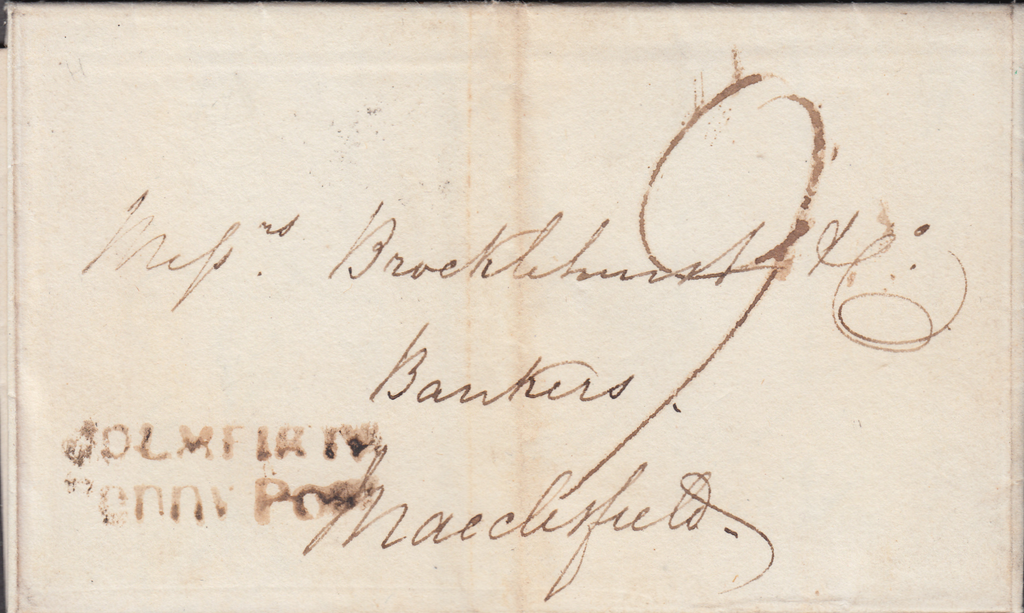 Messrs. Brocklehurst & Co.
9
Bankers.
HOLMFIRTH
Penny Post
Macclesfield.